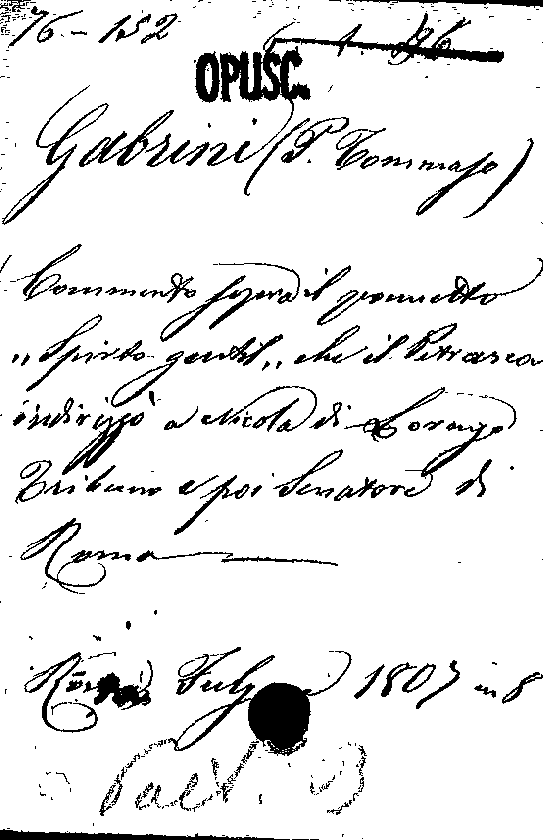 76-152 6 1. 26
OPUSC.
Gabrini (P. Tommaso)
Commento sopra il poemetto
„Spirto gentil„ che il Petrarca
indirizzò a Nicola di Lorenzo
Tribuno e poi Senatore di
Roma
Roma 1807 in 8